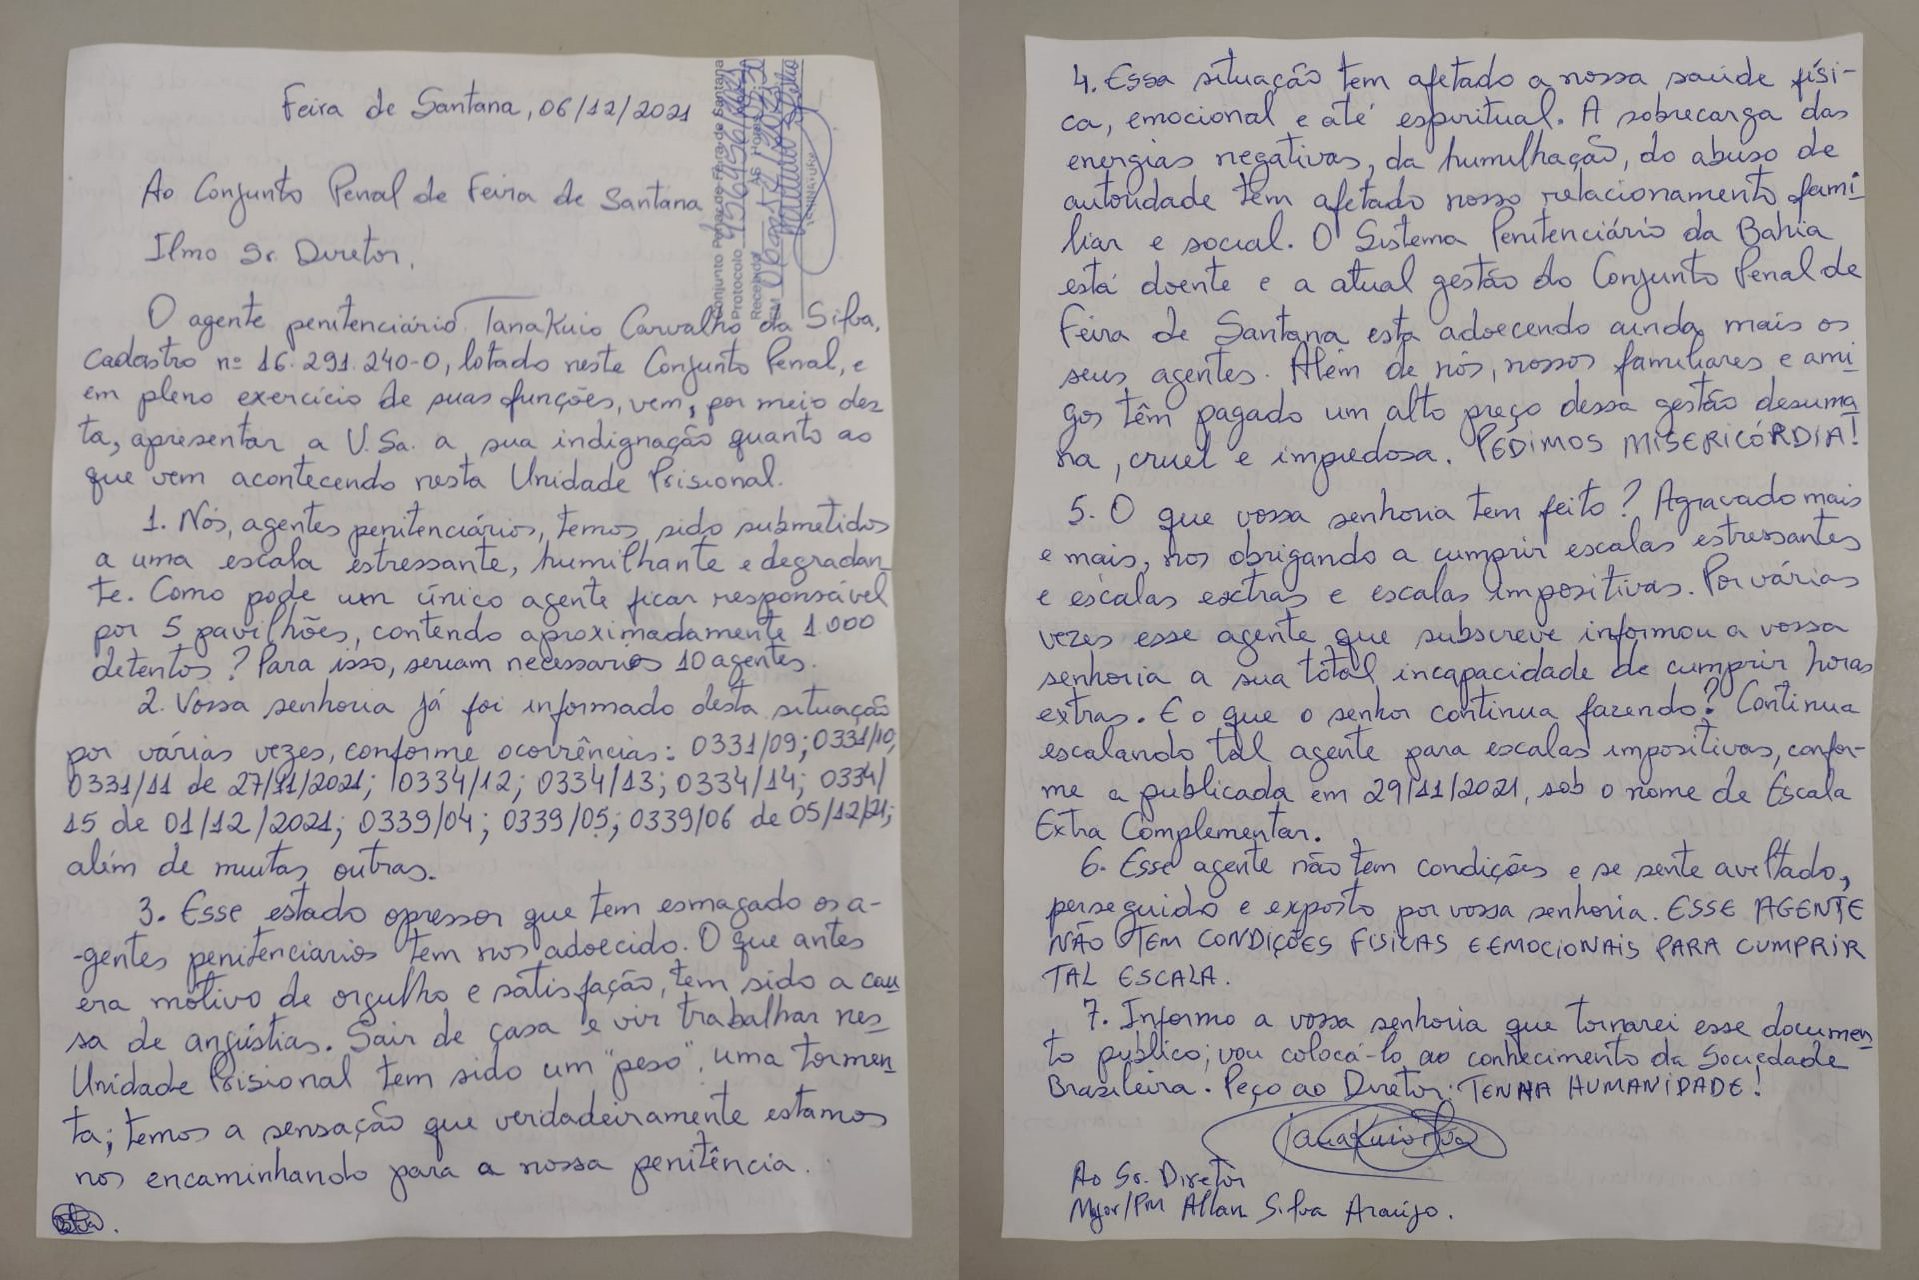 Feira de Santana, 06/12/2021
Conjunto Penal de Feira de Santana
Protocolo
Recebido
Ao Conjunto Penal de Feira de Santana
Ilmo Sr. Diretor,
O agente penitenciário Tanakuio Carvalho da Silva,
cadastro nº 16.291.240-0, lotado neste Conjunto Penal, e
em pleno exercício de suas funções, vem, por meio des
ta, apresentar a V.Sa. a sua indignação quanto ao
que vem acontecendo nesta Unidade Prisional.
1. Nós, agentes penitenciários, temos sido submetidos
a uma escala estressante, humilhante e degradan
te. Como pode um único agente ficar responsável
por 5 pavilhões, contendo aproximadamente 1.000
detentos? Para isso, seriam necessarios 10 agentes.
2. Vossa senhoria já foi informado desta situação
por várias vezes, conforme ocorrências: 0331/09; 0331/10;
0331/11 de 27/11/2021; 0334/12; 0334/13; 0334/14; 0334/
15 de 01/12/2021; 0339/04; 0339/05; 0339/06 de 05/12/21;
além de muitas outras.
3. Esse estado opressor que tem esmagado os a-
-gentes penitenciarios tem nos adoecido. O que antes
era motivo de orgulho e satisfação, tem sido a cau
sa de angústias. Sair de casa e vir trabalhar nes
Unidade Prisional tem sido um "peso", uma tormen
ta; temos a sensação que verdadeiramente estamos
nos encaminhando para a nossa penitência.
4. Essa situação tem afetado a nossa saúde físi-
ca, emocional e até espiritual. A sobrecarga das
energias negativas, da humilhação, do abuso de
autoridade têm afetado nosso relacionamento fami
liar e social. O Sistema Penitenciário da Bahia
está doente e a atual gestão do Conjunto Penal de
Feira de Santana esta adoecendo ainda mais os
seus agentes. Além de nós, nossos familiares e ami
gos têm pagado um alto preço dessa gestão desuma
na, cruel e impiedosa. PEDIMOS MISERICÓRDIA!
5. O que vossa senhoria tem feito? Agravado mais
e mais, nos obrigando a cumprir escalas estressantes
e escalas extras e escalas impositivas. Por várias
vezes esse agente que subscreve informou a vossa
senhoria a sua total incapacidade de cumprir horas
extras. E o que o senhor continua fazendo? Continua
escalando tal agente para escalas impositivas, confor-
me a publicada em 29/11/2021, sob o nome de Escala
Extra Complementar.
6. Esse agente não tem condições e se sente aviltado,
perseguido e exposto por vossa senhoria. ESSE AGENTE
NÃO TEM CONDIÇÕES FISICAS E EMOCIONAIS PARA CUMPRIR
TAL ESCALA.
7. Informo a vossa senhoria que tornarei esse documen
to público; vou colocá-lo ao conhecimento da Sociedade
Brasileira. Peço ao Diretor: TENHA HUMANIDADE!
Ao Sr. Diretor
Major/PM Allan Silva Araújo.